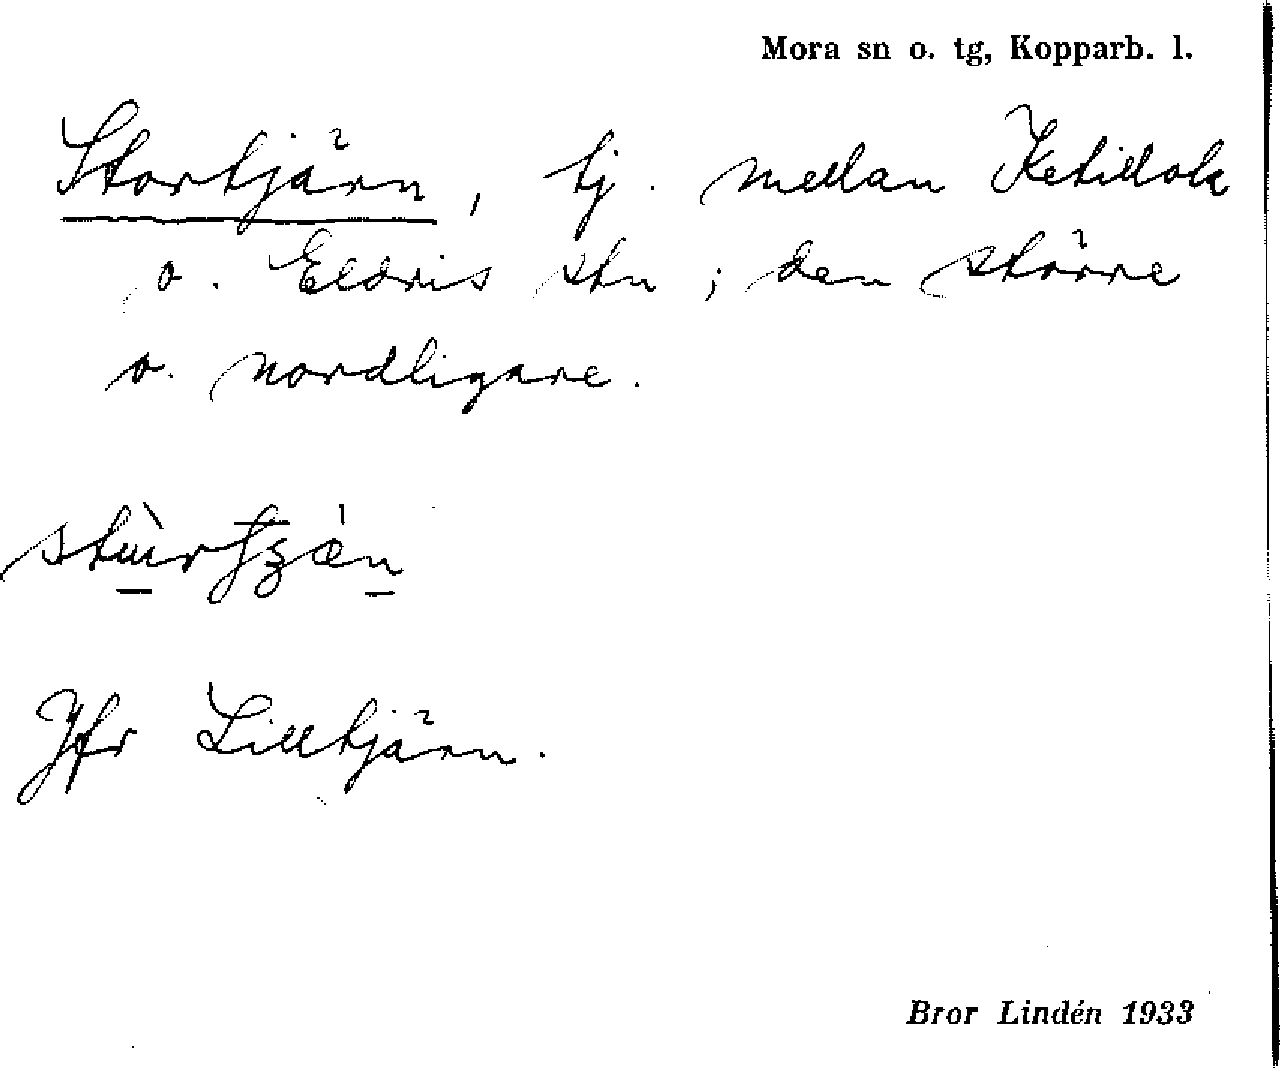 Mora sn o. tg, Kopparb. l.
Stortjärn, tj. mellan Ketillok
o. Eldris stn; den större
o. nordligare.
Jfr Lilltjärn.
Bror Lindén 1933